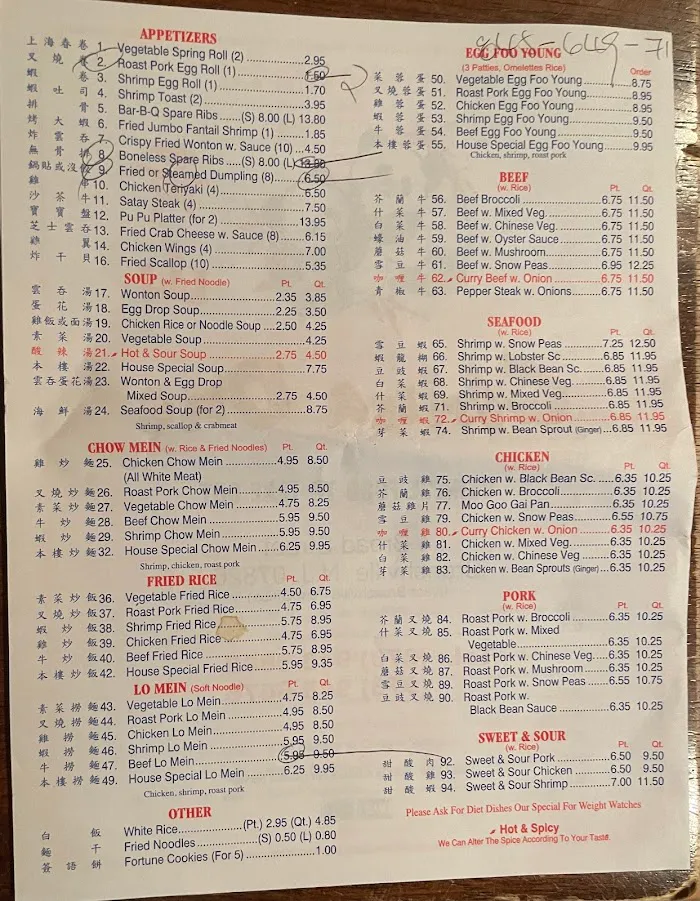 APPETIZERS
上海春卷 1. Vegetable Spring Roll (2) 2.95
叉燒卷 2. Roast Pork Egg Roll (1) 1.50
蝦卷 3. Shrimp Egg Roll (1) 1.70
蝦吐司 4. Shrimp Toast (2) 3.95
排骨 5. Bar-B-Q Spare Ribs (S) 8.00 (L) 13.80
烤大蝦 6. Fried Jumbo Fantail Shrimp (1) 1.85
炸雲吞 7. Crispy Fried Wonton w. Sauce (10) 4.50
無骨排 8. Boneless Spare Ribs (S) 8.00 (L) 13.80
鍋貼或沒餃 9. Fried or Steamed Dumpling (8) 6.50
雞串 10. Chicken Teriyaki (4) 6.50
沙茶牛 11. Satay Steak (4) 7.50
寶寶盤 12. Pu Pu Platter (for 2) 13.95
芝士雲吞 13. Fried Crab Cheese w. Sauce (8) 6.15
雞翼 14. Chicken Wings (4) 7.00
炸干貝 16. Fried Scallop (10) 5.35
SOUP (w. Fried Noodle) Pt. Qt.
雲吞湯 17. Wonton Soup 2.35 3.85
蛋花湯 18. Egg Drop Soup 2.25 3.50
雞飯或面湯 19. Chicken Rice or Noodle Soup 2.50 4.25
素菜湯 20. Vegetable Soup 4.25
酸辣湯 21. Hot & Sour Soup 2.75 4.50
本樓湯 22. House Special Soup 7.75
雲吞蛋花湯 23. Wonton & Egg Drop
Mixed Soup 2.75 4.50
海鮮湯 24. Seafood Soup (for 2) 8.75
Shrimp, scallop & crabmeat
CHOW MEIN (w. Rice & Fried Noodles) Pt. Qt.
雞炒麵 25. Chicken Chow Mein 4.95 8.50
(All White Meat)
叉燒炒麵 26. Roast Pork Chow Mein 4.95 8.50
素菜炒麵 27. Vegetable Chow Mein 4.75 8.25
牛炒麵 28. Beef Chow Mein 5.95 9.50
蝦炒麵 29. Shrimp Chow Mein 5.95 9.50
本樓炒麵 32. House Special Chow Mein 6.25 9.95
Shrimp, chicken, roast pork
FRIED RICE Pt. Qt.
素菜炒飯 36. Vegetable Fried Rice 4.50 6.75
叉燒炒飯 37. Roast Pork Fried Rice 4.75 6.95
蝦炒飯 38. Shrimp Fried Rice 5.75 8.95
雞炒飯 39. Chicken Fried Rice 4.75 6.95
牛炒飯 40. Beef Fried Rice 5.75 8.95
本樓炒飯 42. House Special Fried Rice 5.95 9.35
LO MEIN (Soft Noodle) Pt. Qt.
素菜撈麵 43. Vegetable Lo Mein 4.75 8.25
叉燒撈麵 44. Roast Pork Lo Mein 4.95 8.50
雞撈麵 45. Chicken Lo Mein 4.95 8.50
蝦撈麵 46. Shrimp Lo Mein 5.95 9.50
牛撈麵 47. Beef Lo Mein 5.95 9.50
本樓撈麵 49. House Special Lo Mein 6.25 9.95
Chicken, shrimp, roast pork
OTHER
白飯 White Rice (Pt.) 2.95 (Qt.) 4.85
麵干 Fried Noodles (S) 0.50 (L) 0.80
簽語餅 Fortune Cookies (For 5) 1.00
EGG FOO YOUNG
(3 Patties, Omelettes Rice) Order
菜蓉蛋 50. Vegetable Egg Foo Young 8.75
叉燒蓉蛋 51. Roast Pork Egg Foo Young 8.95
雞蓉蛋 52. Chicken Egg Foo Young 8.95
蝦蓉蛋 53. Shrimp Egg Foo Young 9.50
牛蓉蛋 54. Beef Egg Foo Young 9.50
本樓蓉蛋 55. House Special Egg Foo Young 9.95
Chicken, shrimp, roast pork
BEEF
(w. Rice) Pt. Qt.
芥蘭牛 56. Beef Broccoli 6.75 11.50
什菜牛 57. Beef w. Mixed Veg. 6.75 11.50
白菜牛 58. Beef w. Chinese Veg. 6.75 11.50
蠔油牛 59. Beef w. Oyster Sauce 6.75 11.50
蘑菇牛 60. Beef w. Mushroom 6.75 11.50
雪豆牛 61. Beef w. Snow Peas 6.95 12.25
咖喱牛 62. Curry Beef w. Onion 6.75 11.50
青椒牛 63. Pepper Steak w. Onions 6.75 11.50
SEAFOOD
(w. Rice) Pt. Qt.
雪豆蝦 65. Shrimp w. Snow Peas 7.25 12.50
蝦龍糊 66. Shrimp w. Lobster Sc 6.85 11.95
豆豉蝦 67. Shrimp w. Black Bean Sc. 6.85 11.95
白菜蝦 68. Shrimp w. Chinese Veg. 6.85 11.95
什菜蝦 69. Shrimp w. Mixed Veg. 6.85 11.95
芥蘭蝦 71. Shrimp w. Broccoli 6.85 11.95
咖喱蝦 72. Curry Shrimp w. Onion 6.85 11.95
芽菜蝦 74. Shrimp w. Bean Sprout (Ginger) 6.85 11.95
CHICKEN
(w. Rice) Pt. Qt.
豆豉雞 75. Chicken w. Black Bean Sc. 6.35 10.25
芥蘭雞 76. Chicken w. Broccoli 6.35 10.25
蘑菇雞片 77. Moo Goo Gai Pan 6.35 10.25
雪豆雞 79. Chicken w. Snow Peas 6.55 10.75
咖喱雞 80. Curry Chicken w. Onion 6.35 10.25
什菜雞 81. Chicken w. Mixed Veg. 6.35 10.25
白菜雞 82. Chicken w. Chinese Veg 6.35 10.25
芽菜雞 83. Chicken w. Bean Sprouts (Ginger) 6.35 10.25
PORK
(w. Rice) Pt. Qt.
芥蘭叉燒 84. Roast Pork w. Broccoli 6.35 10.25
什菜叉燒 85. Roast Pork w. Mixed
Vegetable 6.35 10.25
白菜叉燒 86. Roast Pork w. Chinese Veg. 6.35 10.25
蘑菇叉燒 87. Roast Pork w. Mushroom 6.35 10.25
雪豆叉燒 89. Roast Pork w. Snow Peas 6.55 10.75
豆豉叉燒 90. Roast Pork w.
Black Bean Sauce 6.35 10.25
SWEET & SOUR
(w. Rice) Pt. Qt.
甜酸肉 92. Sweet & Sour Pork 6.50 9.50
甜酸雞 93. Sweet & Sour Chicken 6.50 9.50
甜酸蝦 94. Sweet & Sour Shrimp 7.00 11.50
Please Ask For Diet Dishes Our Special For Weight Watches
Hot & Spicy
We Can Alter The Spice According To Your Taste.